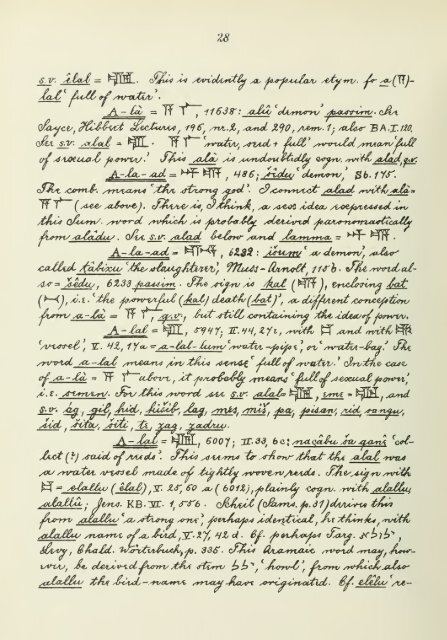 28
s.v. êlal = 𒇲. This is evidently a popular etym. fr a (𒀀)-
lal 'full of water'.
A-lá = 𒀀 𒇲, 11638: alû 'demon' passim. See
Sayce, Hibbert Lectures, 196, nr. 2, and 290, rem. 1; also BA. I. 120.
See s.v. alal = . 𒀀 𒇲 'water, seed + full' would mean 'full
of sexual power.' This alà is undoubtedly cogn. with alad, q.v.
A-la-ad = , 486; šîdu 'demon', Sb. 175.
The comb. means 'the strong god'. I connect alad with alà =
𒀀 𒇲 (see above). There is, I think, a sex. idea expressed in
this Sum. word which is probably derived paronomastically
from alâdu. See s.v. alad below and lamma = .
A-la-ad = , 6232: 'a demon', also
called ṭâbixu 'the slaughterer', Muss-Arnolt, 115 b. The word al-
so = šêdu, 6233 passim. The sign is kal ( ), enclosing bat
( ), i.e. 'the powerful (kal) death (bat)', a different conception
from a-là = 𒀀 𒇲, q.v., but still containing the idea of power.
A-lal = , 5947; II. 44, 27 c, with and with
'vessel', V. 42, 17 a = a-lal-lum 'water-pipe', or 'water-bag'. The
word a-lal means in this sense 'full of water.' In the case
of a-là = 𒀀 𒇲 above, it probably means 'full of sexual power',
i.e. semen. For this word see s.v. alal = , eme = , and
s.v. ág, gil, hid, kišib, lag, mes, miš, pa, pisan, rid, sangu,
šid, šita, šiti, te, zag, zadru.
A-lal = , 6007; II. 33, 6 c; naçâbu ša qanê 'col-
lect (?) said of reeds.' This seems to show that the alal was
a water vessel made of tightly woven reeds. The sign with
= elallu (êlal), V. 25, 60 a (6012), plainly cogn. with alallu,
alallû; Jens. KB. VI. 1, 556. Scheil (Sams. p. 31) derives this
from alallu 'a strong one', perhaps identical, he thinks, with
alallu name of a bird, V. 27, 42 d. Cf. perhaps Targ.
Levy, Chald. Wörterbuch, p. 335. This Aramaic word may, how-
ever, be derived from the stem , 'howl', from which also
alallu the bird-name may have originated. Cf. elêlu 're-